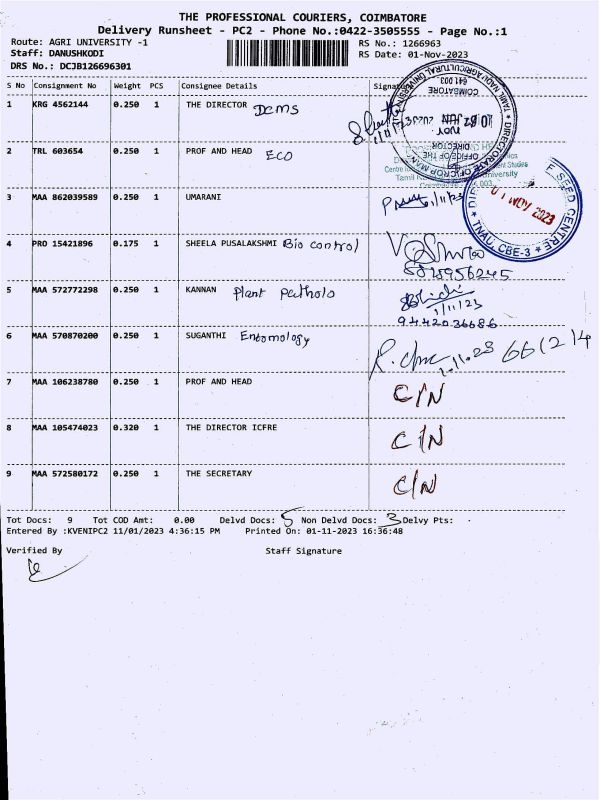 THE PROFESSIONAL COURIERS, COIMBATORE
Delivery Runsheet - PC2 - Phone No.:0422-3505555 - Page No.:1
Route: AGRI UNIVERSITY -1 RS No.: 1266963
Staff: DANUSHKODI RS Date: 01-Nov-2023
DRS No.: DCJB126696301
S No Consignment No Weight PCS Consignee Details
1 KRG 4562144 0.250 1 THE DIRECTOR DCMS
2 TRL 603654 0.250 1 PROF AND HEAD ECO
3 MAA 862039589 0.250 1 UMARANI 1/11/23
4 PRO 15421896 0.175 1 SHEELA PUSALAKSHMI Bio control
5 MAA 572772298 0.250 1 KANNAN plant patholo
1/11/23
9442036686
6 MAA 570870200 0.250 1 SUGANTHI Entomology
7 MAA 106238780 0.250 1 PROF AND HEAD C/N
8 MAA 105474023 0.320 1 THE DIRECTOR ICFRE C/N
9 MAA 572580172 0.250 1 THE SECRETARY C/N
Tot Docs: 9 Tot COD Amt: 0.00 Delvd Docs: 5 Non Delvd Docs: 3 Delvy Pts:
Entered By :KVENIPC2 11/01/2023 4:36:15 PM Printed On: 01-11-2023 16:36:48
Verified By Staff Signature
TAMIL NADU AGRICULTURAL UNIVERSITY
COIMBATORE
641 003
DIRECTOR
OFFICE OF THE
DIRECTORATE OF CROP
University
SEED CENTRE
01 NOV 2023
TNAU, CBE-3